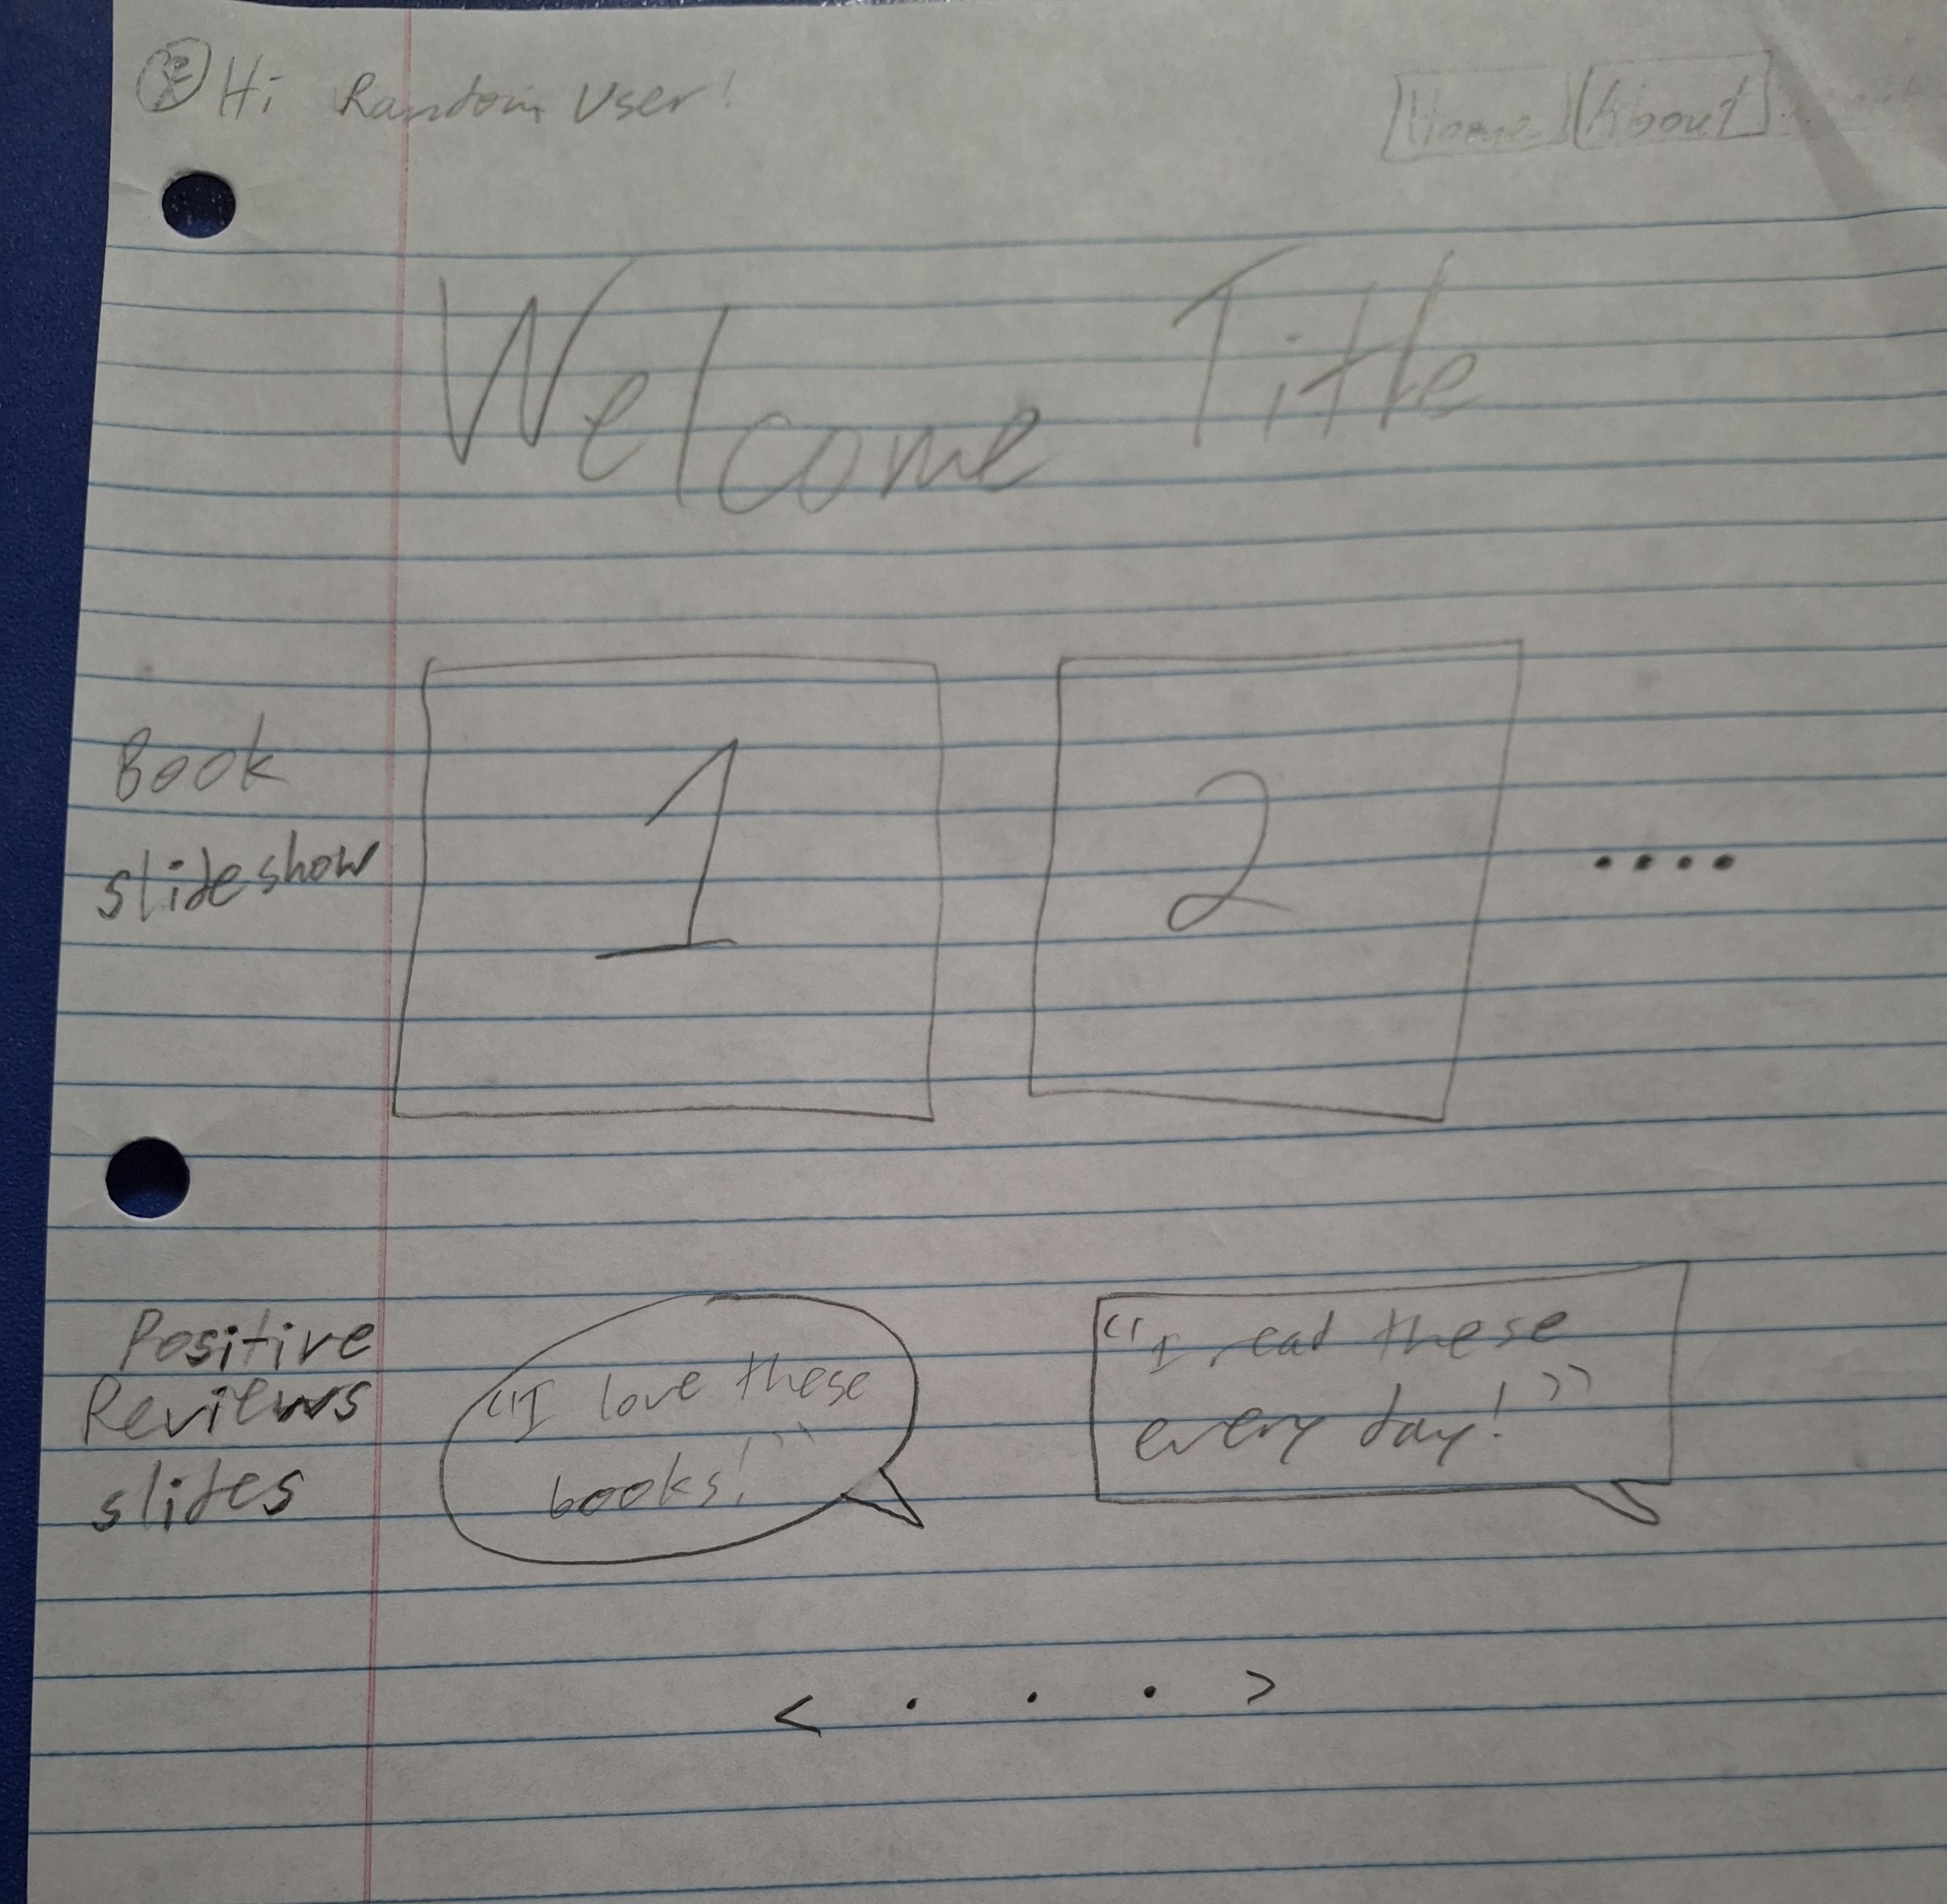 Hi Random User!
Home About
Welcome Title
Book
slideshow
1
2
....
Positive
Reviews
slides
"I love these
books!"
"I read these
every day!"
< . . . >